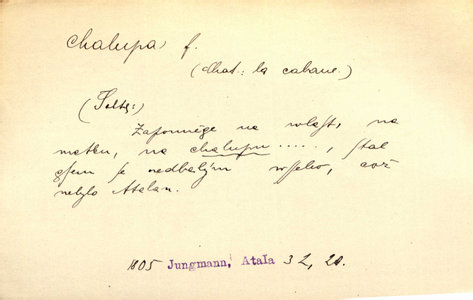 chalupa f.
(Chat.: la cabane.)
(Seltz:)
Zapomněge na wlast, na
matku, na chalupu ....., stal
gsem se nedbalým wsseho, což
nebylo Atalau.
1805 Jungmann, Atala 32, 20.